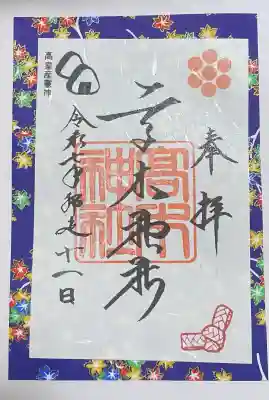 奉拝
高木神社
高木神社
高皇産霊神
令和七年 十一日